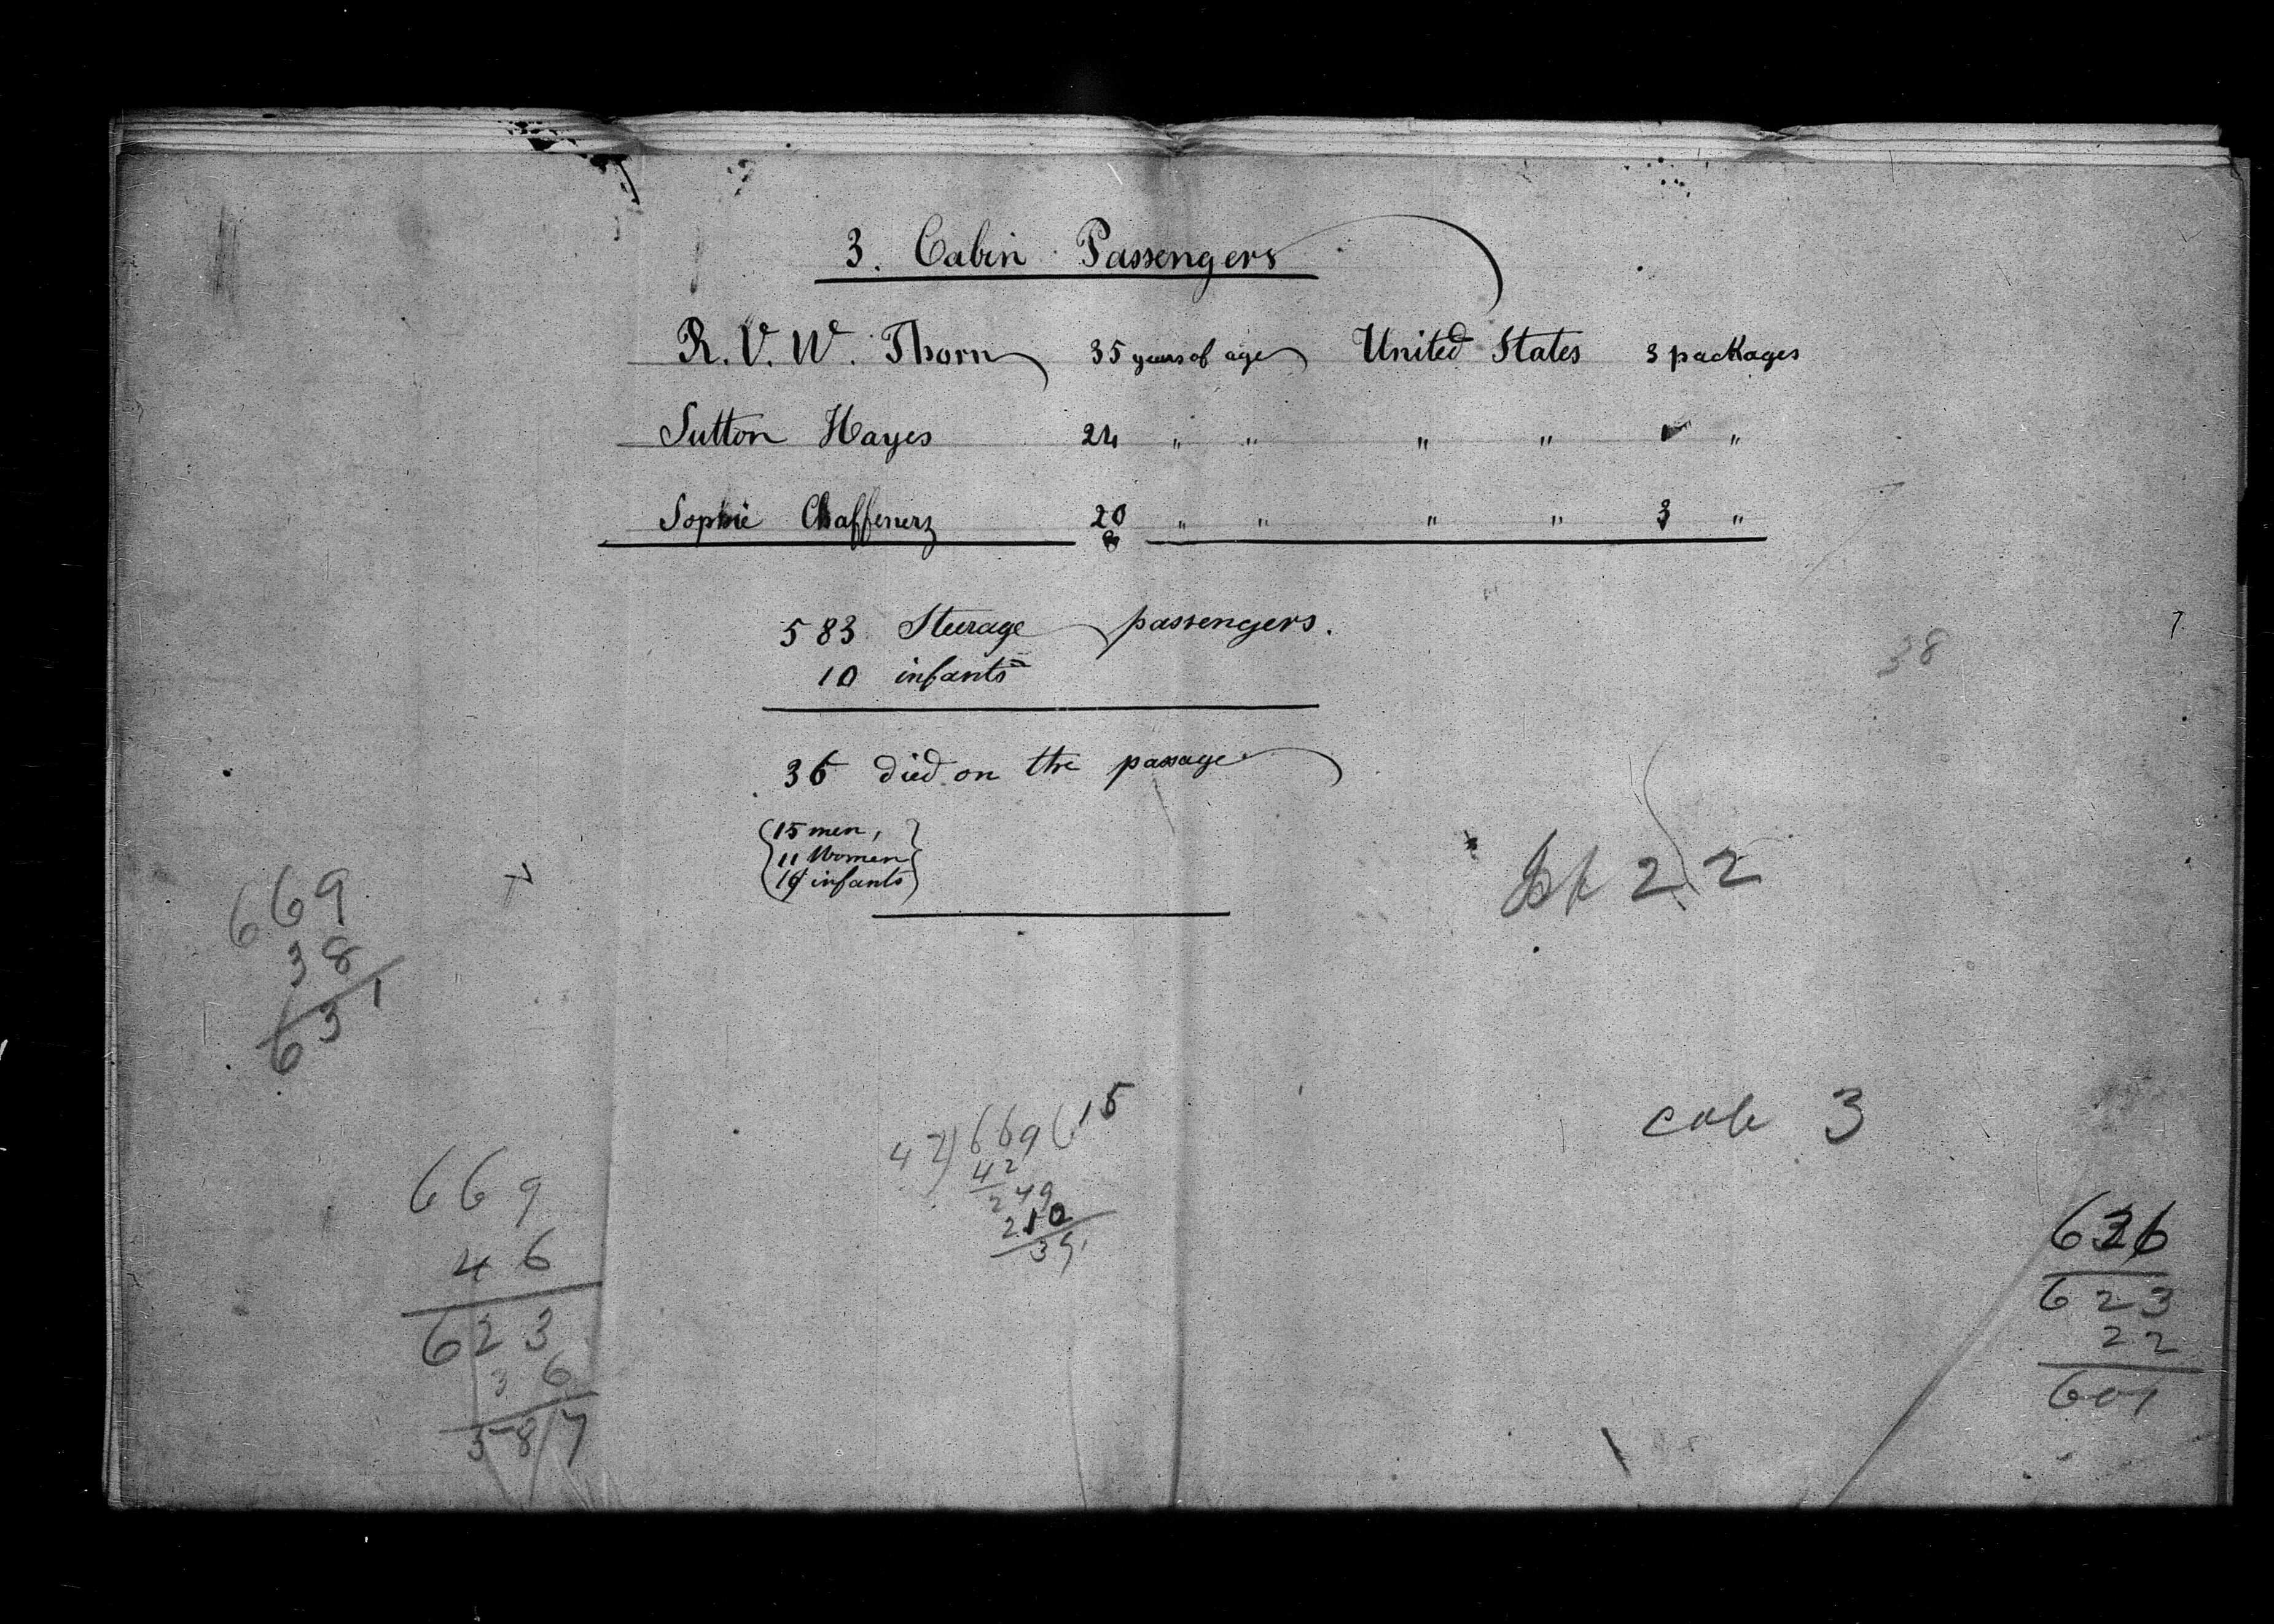 3. Cabin Passengers
R. V. W. Thorn 35 years of age United States 3 packages
Sutton Hayes 24 " " " " "
Sophie 20 " " " " 3 "
583 Steerage passengers.
10 infants
36 died on the passage
15 men,
11 Women
10 infants
38
22
669
38
631
cab 3
42)669(15
42
249
210
39
669
46
623
36
587
626
623
22
601